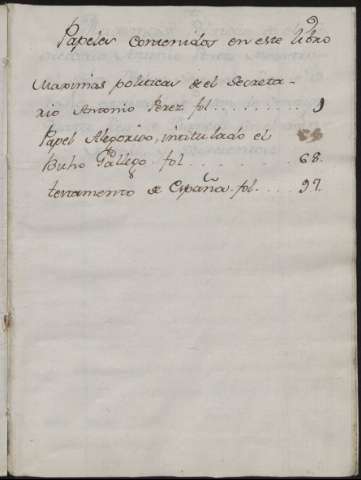 Papeles Contenidos en este libro
Maximas politicas de el Secreta-
rio Antonio Perez fol. . . . . . . . 1
Papel Alegorico, intitulado el
Buho Gallego fol . . . . . . . . . 68.
testamento de España. fol. . . . . 97.